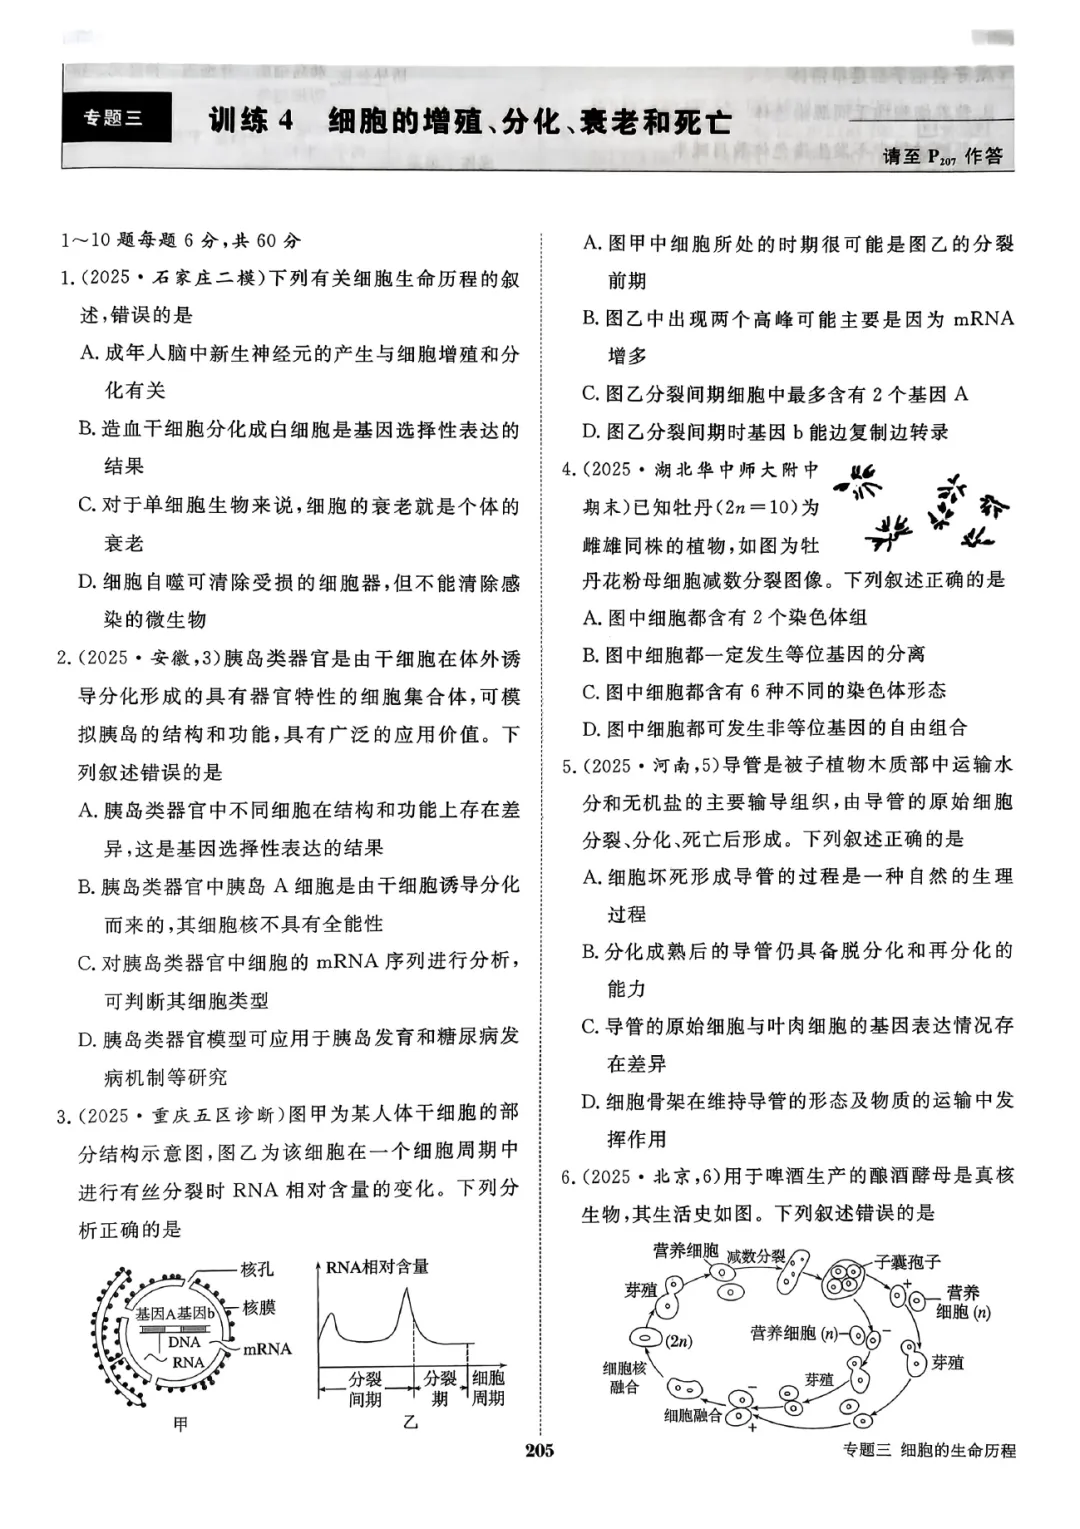 专题三
训练4 细胞的增殖、分化、衰老和死亡
请至 P207 作答
1～10题每题6分,共60分
1.(2025·石家庄二模)下列有关细胞生命历程的叙
述,错误的是
A. 成年人脑中新生神经元的产生与细胞增殖和分
化有关
B. 造血干细胞分化成白细胞是基因选择性表达的
结果
C. 对于单细胞生物来说,细胞的衰老就是个体的
衰老
D. 细胞自噬可清除受损的细胞器,但不能清除感
染的微生物
2.(2025·安徽,3)胰岛类器官是由干细胞在体外诱
导分化形成的具有器官特性的细胞集合体,可模
拟胰岛的结构和功能,具有广泛的应用价值。下
列叙述错误的是
A. 胰岛类器官中不同细胞在结构和功能上存在差
异,这是基因选择性表达的结果
B. 胰岛类器官中胰岛 A 细胞是由干细胞诱导分化
而来的,其细胞核不具有全能性
C. 对胰岛类器官中细胞的 mRNA 序列进行分析,
可判断其细胞类型
D. 胰岛类器官模型可应用于胰岛发育和糖尿病发
病机制等研究
3.(2025·重庆五区诊断)图甲为某人体干细胞的部
分结构示意图,图乙为该细胞在一个细胞周期中
进行有丝分裂时 RNA 相对含量的变化。下列分
析正确的是
核孔
基因A基因b
核膜
DNA
mRNA
RNA
甲
RNA相对含量
分裂间期
分裂期
细胞周期
乙
A. 图甲中细胞所处的时期很可能是图乙的分裂
前期
B. 图乙中出现两个高峰可能主要是因为 mRNA
增多
C. 图乙分裂间期细胞中最多含有 2 个基因 A
D. 图乙分裂间期时基因 b 能边复制边转录
4.(2025·湖北华中师大附中
期末)已知牡丹(2n＝10)为
雌雄同株的植物,如图为牡
丹花粉母细胞减数分裂图像。下列叙述正确的是
A. 图中细胞都含有 2 个染色体组
B. 图中细胞都一定发生等位基因的分离
C. 图中细胞都含有 6 种不同的染色体形态
D. 图中细胞都可发生非等位基因的自由组合
5.(2025·河南,5)导管是被子植物木质部中运输水
分和无机盐的主要输导组织,由导管的原始细胞
分裂、分化、死亡后形成。下列叙述正确的是
A. 细胞坏死形成导管的过程是一种自然的生理
过程
B. 分化成熟后的导管仍具备脱分化和再分化的
能力
C. 导管的原始细胞与叶肉细胞的基因表达情况存
在差异
D. 细胞骨架在维持导管的形态及物质的运输中发
挥作用
6.(2025·北京,6)用于啤酒生产的酿酒酵母是真核
生物,其生活史如图。下列叙述错误的是
营养细胞
减数分裂
子囊孢子
芽殖
+
营养
细胞(n)
(2n)
营养细胞(n)
-
细胞核
融合
芽殖
芽殖
细胞融合
-
+
205
专题三 细胞的生命历程